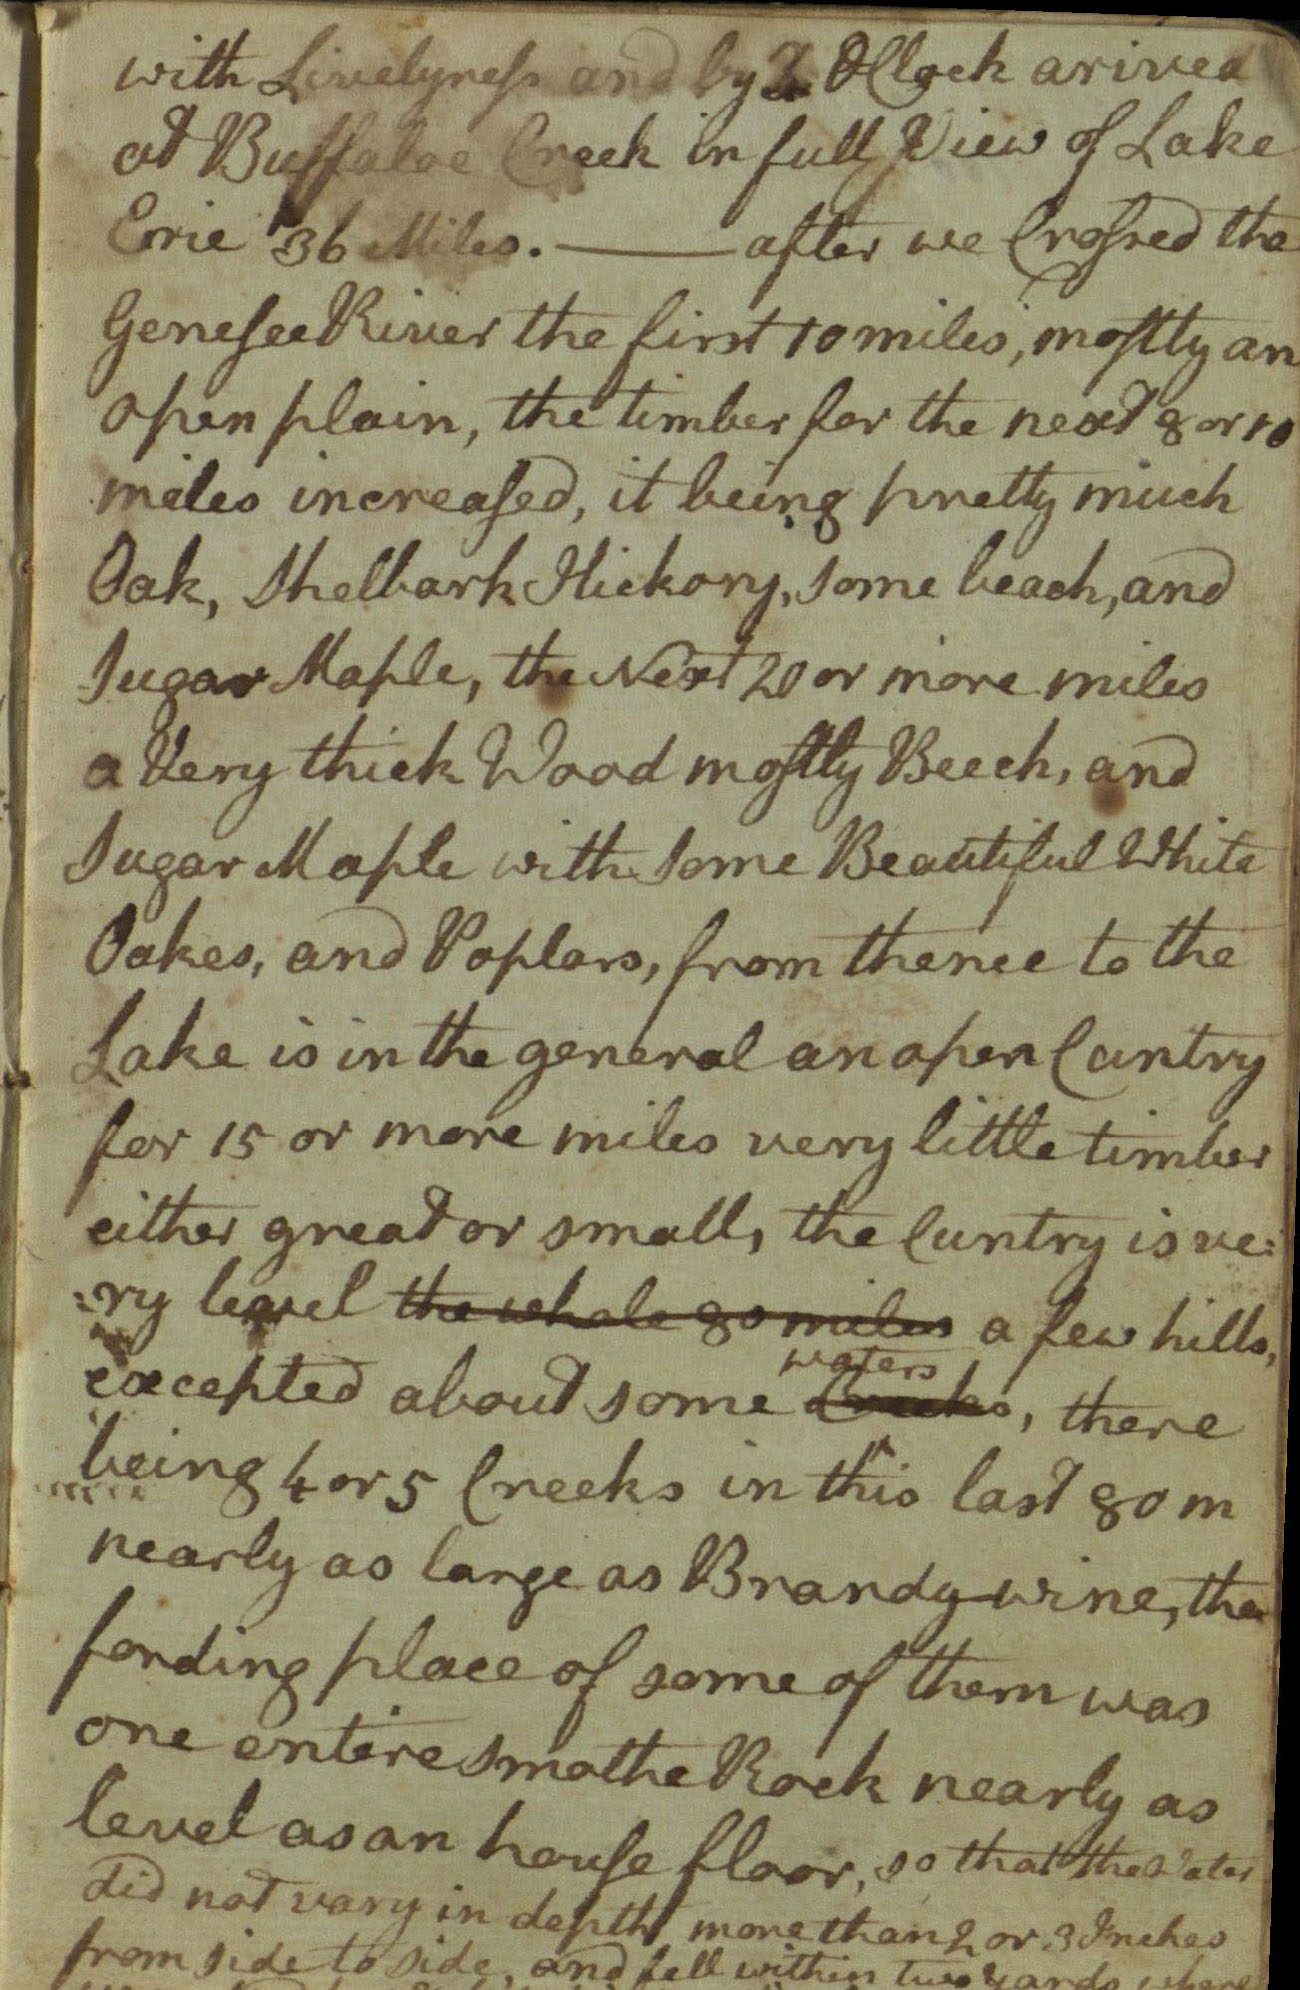 with Livelyness and by 2 OClock arived
at Buffaloe Creek in full View of Lake
Errie 36 Miles. — after we Crossed the
Genesee River the first 10 miles, mostly an
open plain, the timber for the next 8 or 10
miles increased, it being pretty much
Oak, Shelbark Hickory, some beach, and
Sugar Maple, the Next 20 or more miles
a Very thick Wood mostly Beech, and
Sugar Maple with some Beautiful White
Oakes, and Poplars, from thence to the
Lake is in the general an open Cuntry
for 15 or more miles very little timber
either great or small, the Cuntry is ve:
:ry level the whole 80 miles a few hills,
waters
excepted about some Creeks, there
being 4 or 5 Creeks in this last 80 m
nearly as large as Brandy-wine, the
fording place of some of them was
one entire smothe Rock nearly as
level as an house floor, so that the Water
did not vary in depth, more than 2 or 3 Inches
from side to side, and fell within two yards where